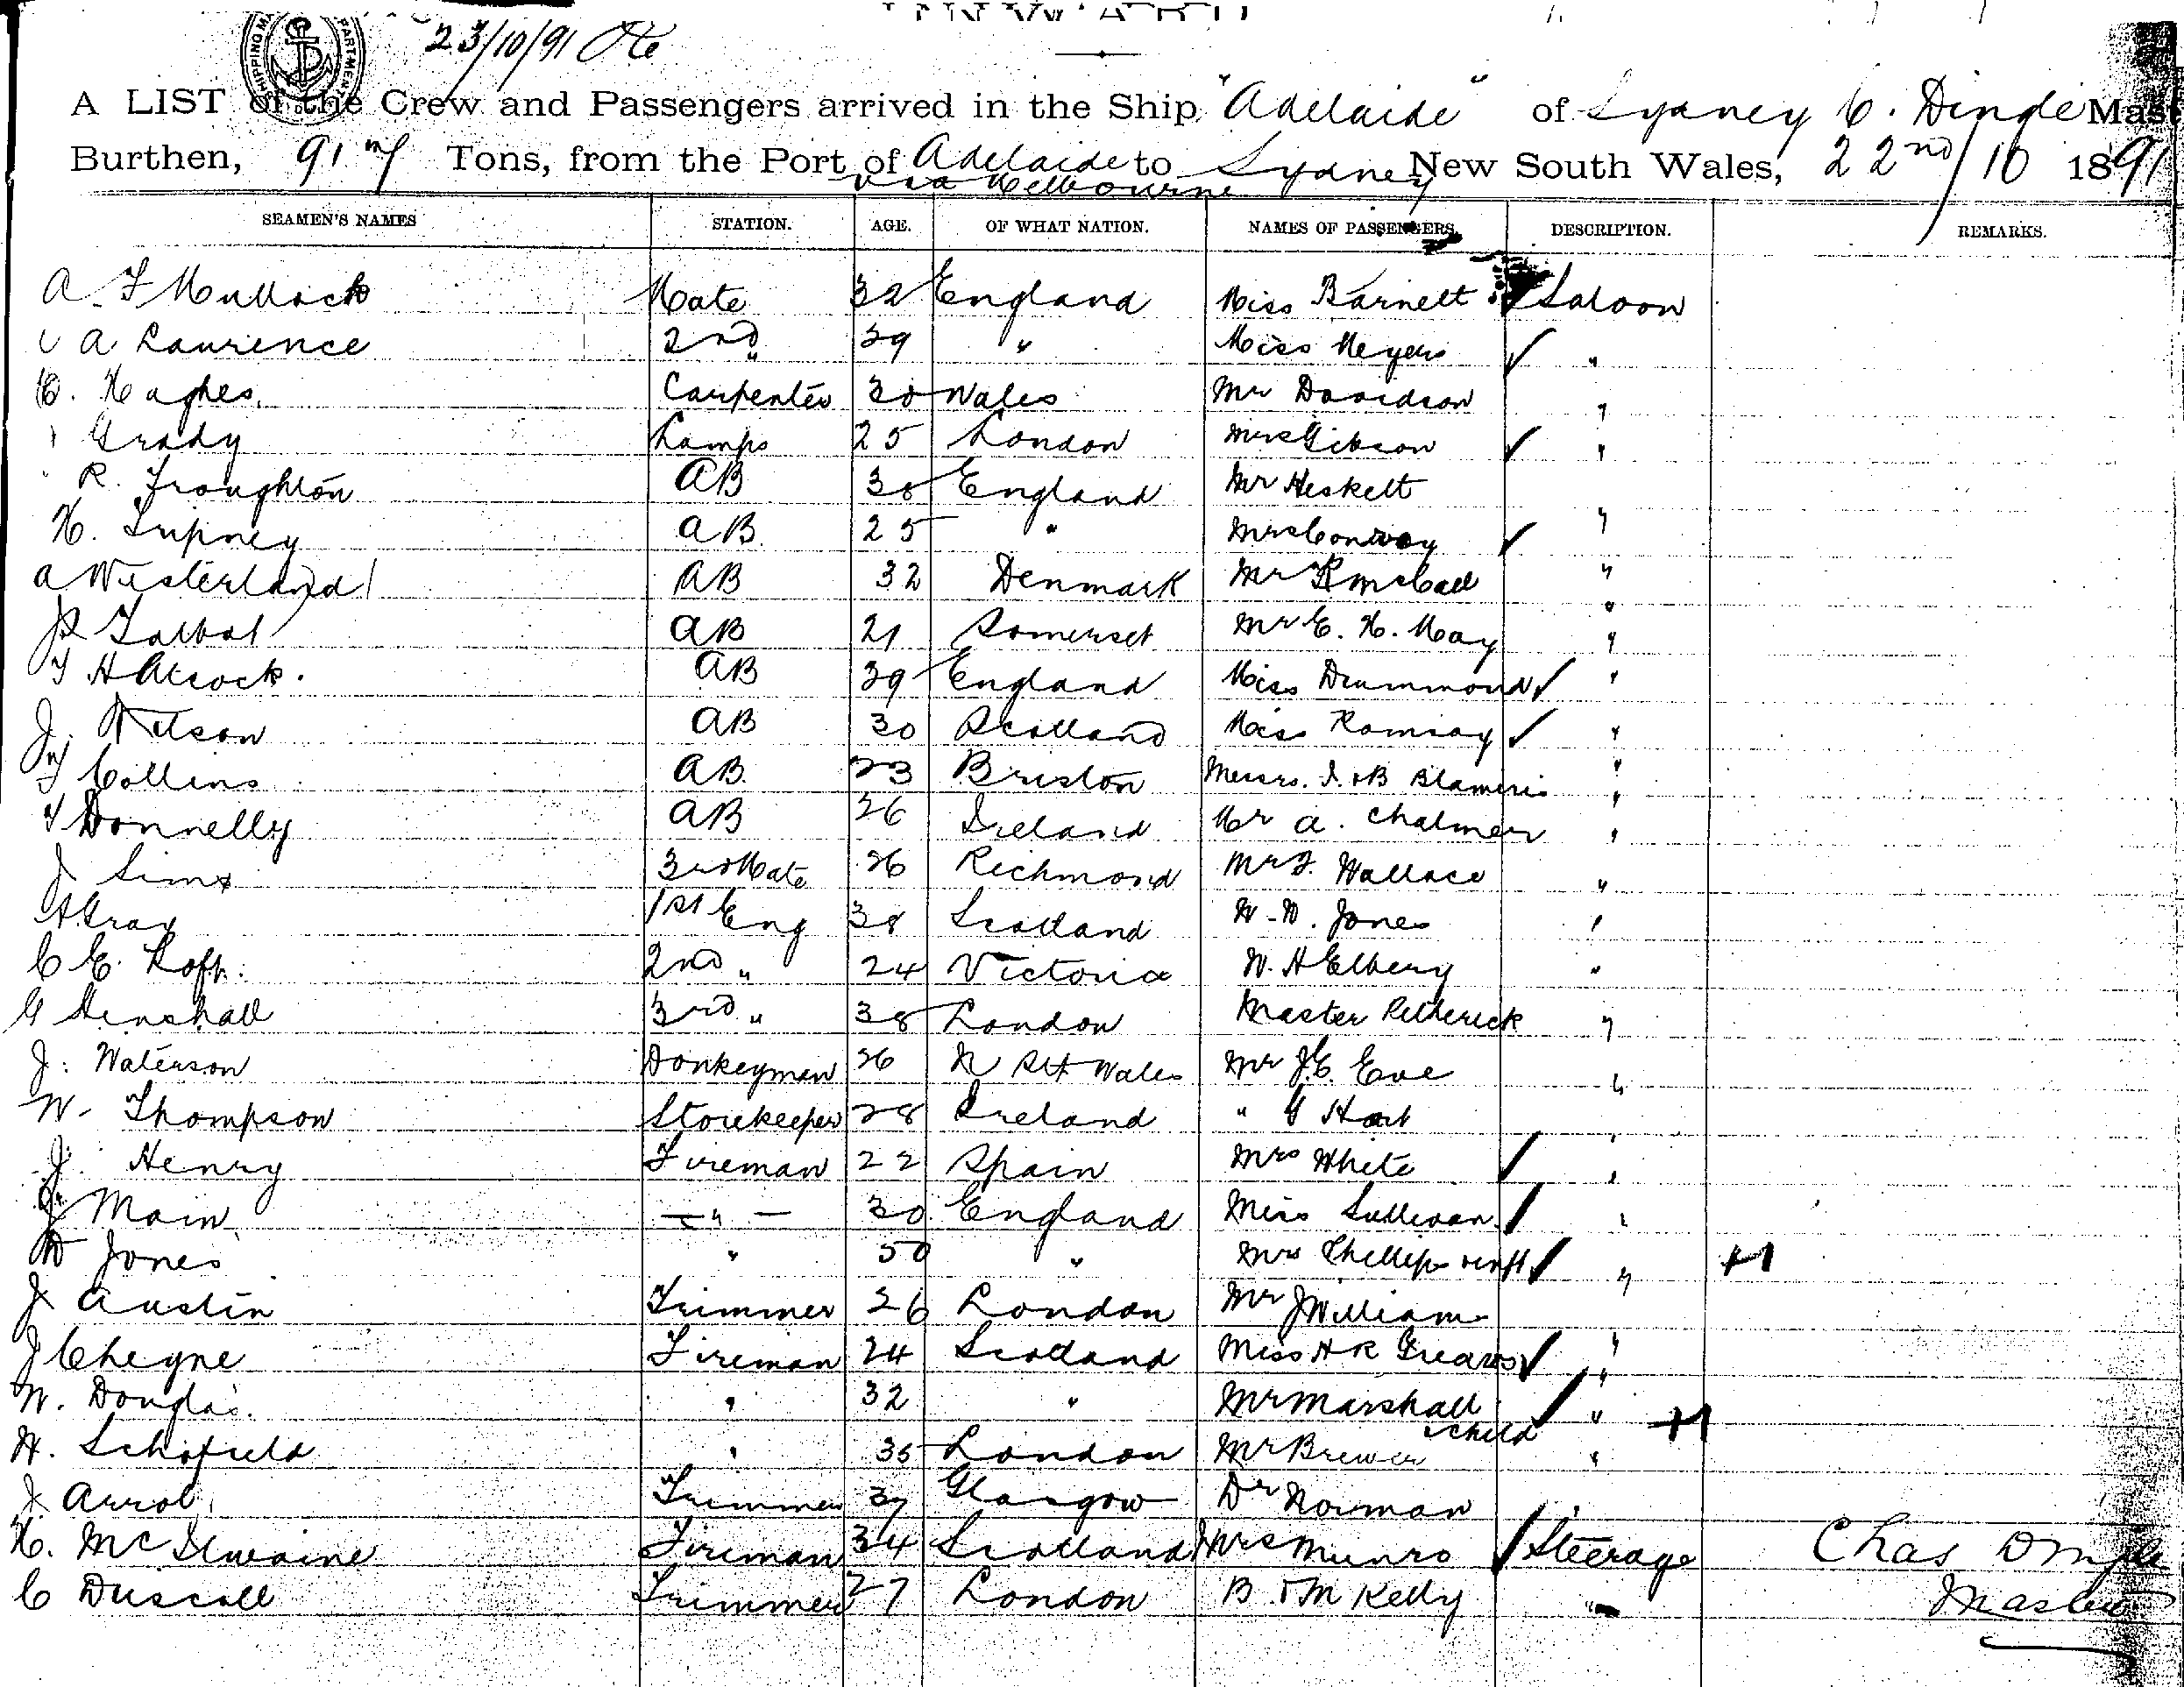 23/10/91
SHIPPING MA PARTMEN
A LIST of the Crew and Passengers arrived in the Ship "Adelaide" of Sydney C. Dingle Mast
Burthen, 917 Tons, from the Port of Adelaide to Sydney New South Wales, 22nd/10 1891
via Melbourne
SEAMEN'S NAMES STATION. AGE. OF WHAT NATION. NAMES OF PASSENGERS. DESCRIPTION. REMARKS.
A. F Mullock Mate 32 England Miss Barnett Saloon
A Laurence 2nd " 29 " Miss Meyers "
Hughes. Carpenter 30 Wales Mr Davidson "
Grady Lamps 25 London Mrs Gibson "
R. Troughton AB 38 England Mr Heskett
H. Tupney AB. 25 " Mrs Conway "
A Westerland AB 32 Denmark Mr McCall "
Talbot AB 21 Somerset Mr E. H. May "
T H Alcock. AB 39 England Miss Drummond "
J. Wilson AB 30 Scotland Miss Ramsay "
Collins AB. 23 Bristol Messrs. & B "
T Donnelly AB 26 Ireland Mr A. Chalmers "
J Sims 3rd Mate 26 Richmond Mr J. Wallace "
A Gray 1st Eng 38 Scotland W. Jones "
C E. Loft. 2nd " 24 Victoria W. H Elbery "
G Henshall 3rd " 38 London Master Petherick "
J. Waterson Donkeyman 26 N Sth Wales Mr J. C. Eve "
W. Thompson Storekeeper 28 Ireland " G Hart "
J. Henry Fireman 22 Spain Mrs White "
J Main — " — 30 England Miss Sullivan "
Jones " 50 " Mrs Phillips "
J Austin Trimmer 26 London Mr J Williams
J Cheyne Fireman 24 Scotland Miss H R Greaves "
W. Douglas. " 32 " Mr Marshall "
& child
H. Schofield " 35 London Mr Brewer "
J Arrol Trimmer 37 Glasgow Dr Norman
H. McIlwaine Fireman 34 Scotland Mrs Munro Steerage
C Driscoll Trimmer 27 London B & M Kelly "
Chas Dingle
Master